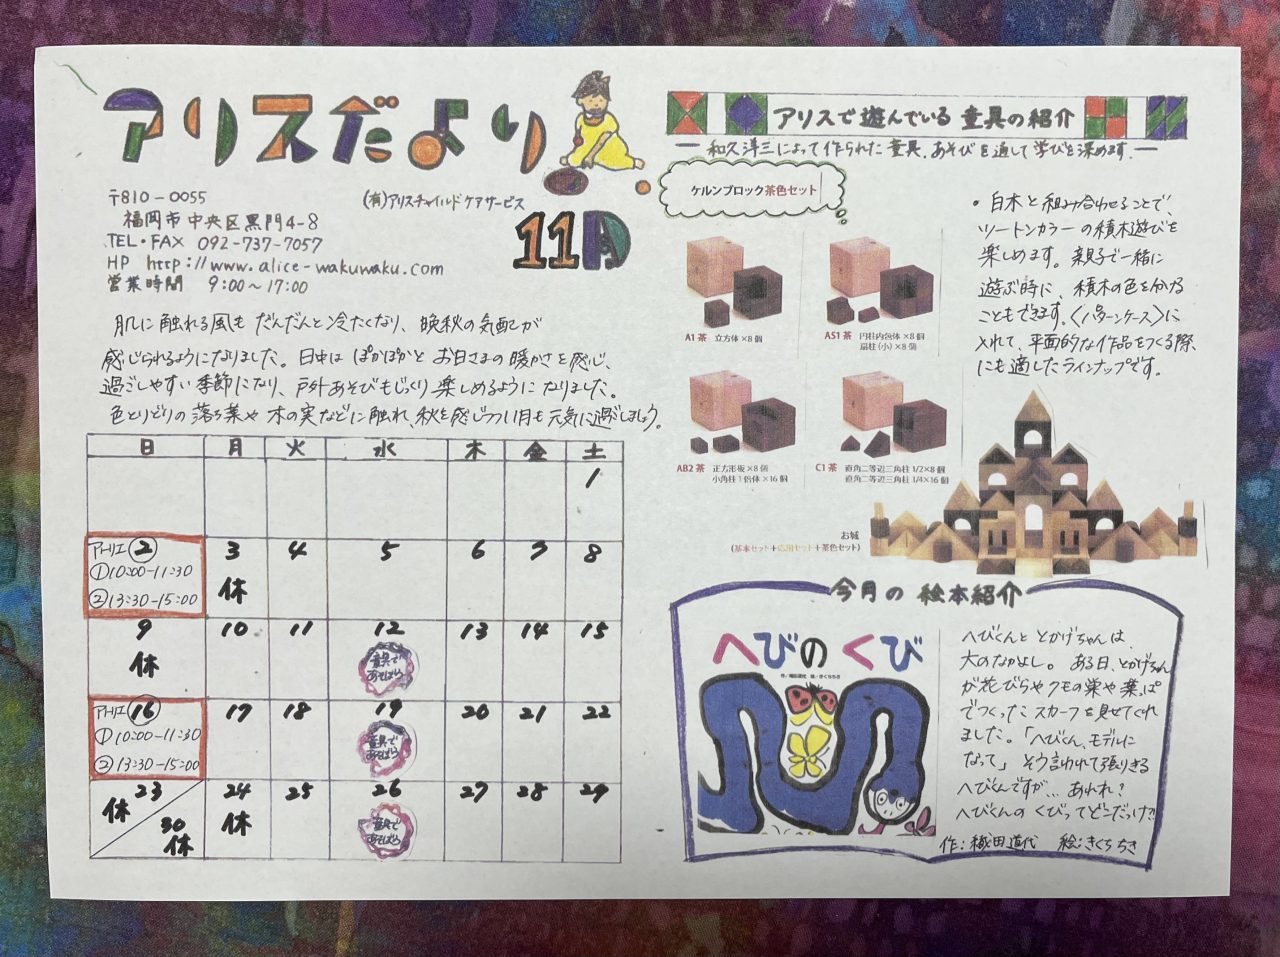 アリスだより
〒810-0055
(有)アリスチャイルドケアサービス
福岡市中央区黒門4-8
TEL・FAX 092-737-7057
HP http://www.alice-wakuwaku.com
営業時間 9:00〜17:00
11月
肌に触れる風もだんだんと冷たくなり、晩秋の気配が
感じられるようになりました。日中はぽかぽかとお日さまの暖かさを感じ、
過ごしやすい季節になり、戸外あそびもじっくり楽しめるようになりました。
色とりどりの落ち葉や木の実などに触れ、秋を感じつつ11月も元気に過ごしましょう。
日 月 火 水 木 金 土
1
アトリエ 2 3 4 5 6 7 8
①10:00-11:30
②13:30-15:00
休
9 10 11 12 13 14 15
休
童具で
あそぼう
アトリエ 16 17 18 19 20 21 22
①10:00-11:30
②13:30-15:00
童具で
あそぼう
23 24 25 26 27 28 29
休 休
30
休
童具で
あそぼう
アリスで遊んでいる童具の紹介
― 和久洋三によって作られた童具。あそびを通して学びを深めます。―
ケルンブロック茶色セット
A1茶 立方体×8個
AS1茶 円柱内包体×8個
扇柱(小)×8個
AB2茶 正方形板×8個
小角柱1倍体×16個
C1茶 直角二等辺三角柱1/2×8個
直角二等辺三角柱1/4×16個
・白木と組み合わせることで、
ツートンカラーの積木遊びを
楽しめます。親子で一緒に
遊ぶ時に、積木の色を分ける
こともできます。〈パターンケース〉に
入れて、平面的な作品をつくる際
にも適したラインナップです。
お城
(基本セット+応用セット+茶色セット)
今月の絵本紹介
へびのくび
作/織田道代 絵/きくちちき
へびくんととかげちゃんは、
大のなかよし。ある日、とかげちゃん
が花びらやクモの巣や葉っぱ
でつくったスカーフを見せてくれ
ました。「へびくん、モデルに
なって」そう言われて張りきる
へびくんですが…あれれ?
へびくんのくびってどこだっけ?!
作:織田道代 絵:きくちちき